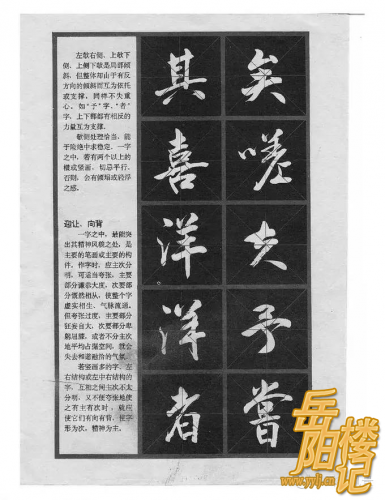 左欹右侧,上欹下
侧,上侧下欹是局部倾
斜,但整体却由于有反
方向的倾斜而互为依托
或支撑,同样不失重
心。如“予”字、“者”
字,上下都有相反的
力量互为支撑。
欹侧处理恰当,能
于险绝中求稳定。一字
之中,若有两个以上的
横或竖画,切忌平行,
否则,会有倾塌或轻浮
之感。
迎让、向背
一字之中,最能突
出其精神风貌之处,是
主要的笔画或主要的构
件。作字时,应主次分
明,可适当夸张。主要
部分谦恭大度,次要部
分慨然相从,使整个字
虚实相生,气脉流通。
但夸张过度,主要部分
狂妄自大,次要部分卑
躬屈膝,或者不分主次
地平均占据空间,就会
失去和谐融洽的气氛。
若竖画多的字、左
右结构或左中右结构的
字,互相之间主次不太
分明,又不便夸张地使
之有主有次时,就应
使它们有向有背,使字
形为次,精神为主。
其喜洋洋者
矣嗟夫予嘗
岳阳楼记
www.yylj.cn